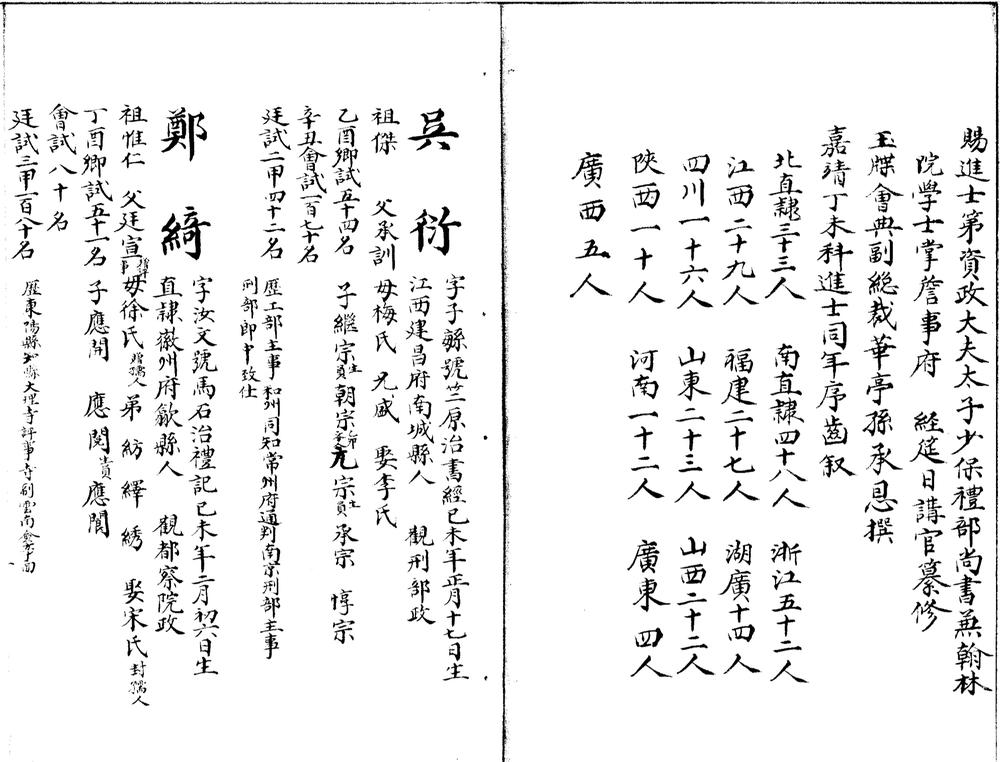 賜進士第資政大夫太子少保禮部尚書兼翰林
院學士掌詹事府　經筵日講官纂修
玉牒會典副總裁華亭孫承恩撰
嘉靖丁未科進士同年序齒叙
北直隸三十三人　南直隸四十八人　浙江五十二人
江西二十九人　福建二十七人　湖廣十四人
四川一十六人　山東二十三人　山西二十二人
陝西一十人　河南一十二人　廣東四人
廣西五人
吳衍
字子繇號竺原治書經己未年正月十七日生
江西建昌府南城縣人　觀刑部政
祖傑　父承訓　母梅氏　兄盛　娶李氏
乙酉鄉試五十四名　子繼宗生員朝宗　元宗生員承宗　惇宗
辛丑會試一百七十名
廷試二甲四十二名　歷工部主事和州同知常州府通判南京刑部主事
刑部郎中致仕
鄭綺
字汝文號馬石治禮記己未年二月初六日生
直隸徽州府歙縣人　觀都察院政
祖惟仁　父廷宣贈評事母徐氏贈孺人弟紡　繹　綉　娶宋氏封孺人
丁酉鄉試五十一名　子應開　應閱貢應閣
會試八十名
廷試三甲一百八十名　歷東陽縣知縣大理寺評事寺副雲南僉事